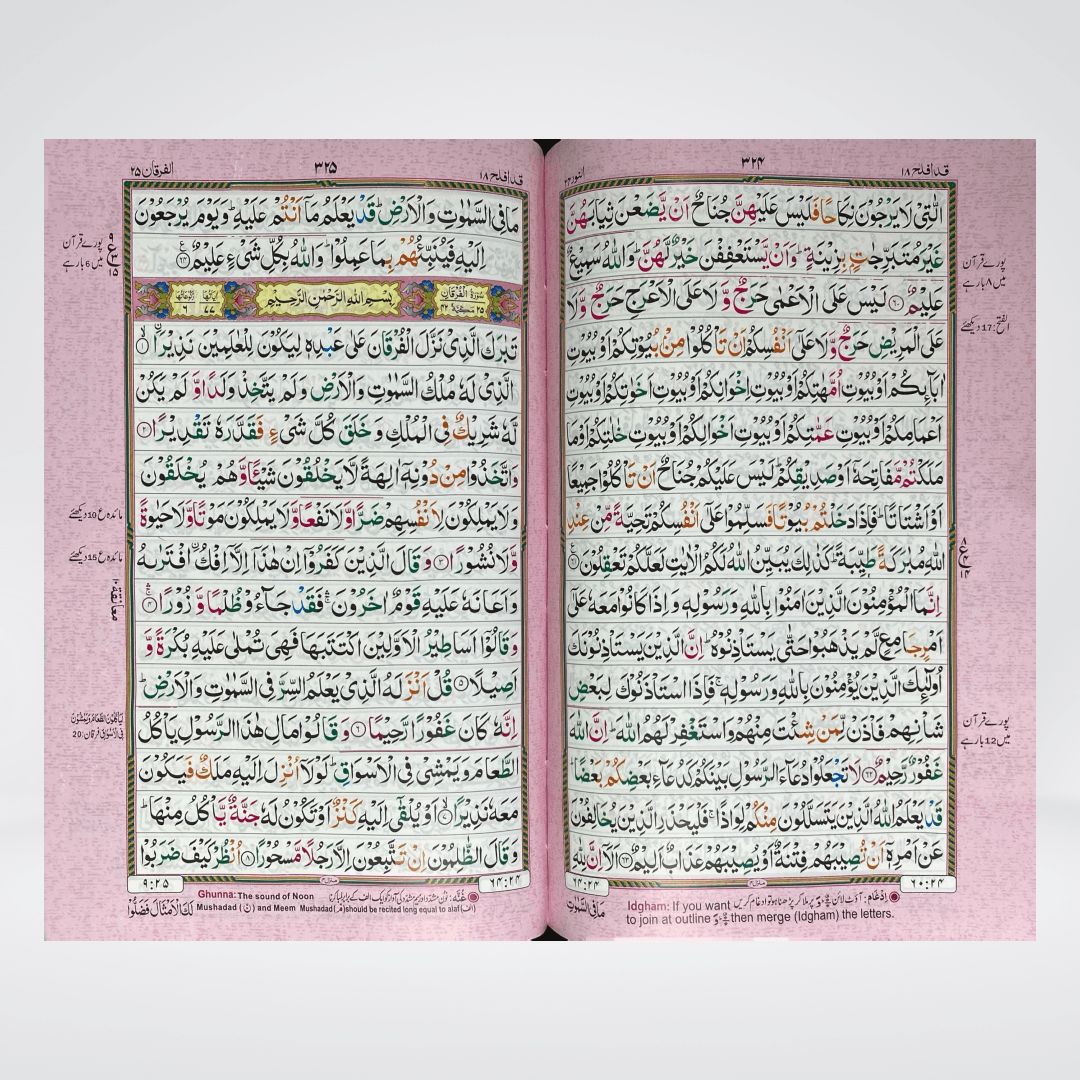 قد افلح ۱۸
۳۲۴
النور ۲۴
الّٰتِىۡ لَا يَرۡجُوۡنَ نِكَاحًا فَلَيۡسَ عَلَيۡهِنَّ جُنَاحٌ اَنۡ يَّضَعۡنَ ثِيَابَهُنَّ
غَيۡرَ مُتَبَرِّجٰتٍۭ بِزِيۡنَةٍ ؕ وَاَنۡ يَّسۡتَعۡفِفۡنَ خَيۡرٌ لَّهُنَّ ؕ وَاللّٰهُ سَمِيۡعٌ
عَلِيۡمٌ ﴿۶۰﴾ لَيۡسَ عَلَى الۡاَعۡمٰى حَرَجٌ وَّلَا عَلَى الۡاَعۡرَجِ حَرَجٌ وَّلَا
عَلَى الۡمَرِيۡضِ حَرَجٌ وَّلَا عَلٰٓى اَنۡفُسِكُمۡ اَنۡ تَاۡكُلُوۡا مِنۡۢ بُيُوۡتِكُمۡ اَوۡ بُيُوۡتِ
اٰبَآئِكُمۡ اَوۡ بُيُوۡتِ اُمَّهٰتِكُمۡ اَوۡ بُيُوۡتِ اِخۡوَانِكُمۡ اَوۡ بُيُوۡتِ اَخَوٰتِكُمۡ اَوۡ بُيُوۡتِ
اَعۡمَامِكُمۡ اَوۡ بُيُوۡتِ عَمّٰتِكُمۡ اَوۡ بُيُوۡتِ اَخۡوَالِكُمۡ اَوۡ بُيُوۡتِ خٰلٰتِكُمۡ اَوۡ مَا
مَلَكۡتُمۡ مَّفَاتِحَهٗۤ اَوۡ صَدِيۡقِكُمۡ ؕ لَيۡسَ عَلَيۡكُمۡ جُنَاحٌ اَنۡ تَاۡكُلُوۡا جَمِيۡعًا
اَوۡ اَشۡتَاتًا ؕ فَاِذَا دَخَلۡتُمۡ بُيُوۡتًا فَسَلِّمُوۡا عَلٰٓى اَنۡفُسِكُمۡ تَحِيَّةً مِّنۡ عِنۡدِ
اللّٰهِ مُبٰرَكَةً طَيِّبَةً ؕ كَذٰلِكَ يُبَيِّنُ اللّٰهُ لَكُمُ الۡاٰيٰتِ لَعَلَّكُمۡ تَعۡقِلُوۡنَ ﴿۶۱﴾
اِنَّمَا الۡمُؤۡمِنُوۡنَ الَّذِيۡنَ اٰمَنُوۡا بِاللّٰهِ وَرَسُوۡلِهٖ وَاِذَا كَانُوۡا مَعَهٗ عَلٰٓى
اَمۡرٍ جَامِعٍ لَّمۡ يَذۡهَبُوۡا حَتّٰى يَسۡتَاۡذِنُوۡهُ ؕ اِنَّ الَّذِيۡنَ يَسۡتَاۡذِنُوۡنَكَ
اُولٰٓئِكَ الَّذِيۡنَ يُؤۡمِنُوۡنَ بِاللّٰهِ وَرَسُوۡلِهٖ ۚ فَاِذَا اسۡتَاۡذَنُوۡكَ لِبَعۡضِ
شَاۡنِهِمۡ فَاۡذَنۡ لِّمَنۡ شِئۡتَ مِنۡهُمۡ وَاسۡتَغۡفِرۡ لَهُمُ اللّٰهَ ؕ اِنَّ اللّٰهَ
غَفُوۡرٌ رَّحِيۡمٌ ﴿۶۲﴾ لَا تَجۡعَلُوۡا دُعَآءَ الرَّسُوۡلِ بَيۡنَكُمۡ كَدُعَآءِ بَعۡضِكُمۡ بَعۡضًا ؕ
قَدۡ يَعۡلَمُ اللّٰهُ الَّذِيۡنَ يَتَسَلَّلُوۡنَ مِنۡكُمۡ لِوَاذًا ۚ فَلۡيَحۡذَرِ الَّذِيۡنَ يُخَالِفُوۡنَ
عَنۡ اَمۡرِهٖۤ اَنۡ تُصِيۡبَهُمۡ فِتۡنَةٌ اَوۡ يُصِيۡبَهُمۡ عَذَابٌ اَلِيۡمٌ ﴿۶۳﴾ اَلَاۤ اِنَّ لِلّٰهِ
۶۰:۲۴
منزل۴
۶۴:۲۴
پورے قرآن
میں ۸ بار ہے
الفتح:17 دیکھئے
۸
ع
۱۴
پورے قرآن
میں 12 بار ہے
اِدْغَام: آؤٹ لائن پر ملا کر پڑھنا ہو تو ادغام کریں
Idgham: If you want
to join at outline then merge (Idgham) the letters.
مَا فِى السَّمٰوٰتِ
قد افلح ۱۸
۳۲۵
الفرقان ۲۵
مَا فِى السَّمٰوٰتِ وَالۡاَرۡضِ ؕ قَدۡ يَعۡلَمُ مَاۤ اَنۡتُمۡ عَلَيۡهِ ؕ وَيَوۡمَ يُرۡجَعُوۡنَ
اِلَيۡهِ فَيُنَبِّئُهُمۡ بِمَا عَمِلُوۡا ؕ وَاللّٰهُ بِكُلِّ شَىۡءٍ عَلِيۡمٌ ﴿۶۴﴾
سُوۡرَةُ الۡفُرۡقَانِ ۲۵ مَكِّيَّةٌ ۴۲
بِسۡمِ اللّٰهِ الرَّحۡمٰنِ الرَّحِيۡمِ
اٰيَاتُهَا ۷۷ رُكُوۡعَاتُهَا ۶
تَبٰرَكَ الَّذِىۡ نَزَّلَ الۡفُرۡقَانَ عَلٰى عَبۡدِهٖ لِيَكُوۡنَ لِلۡعٰلَمِيۡنَ نَذِيۡرَا ۙ﴿۱﴾
اۨلَّذِىۡ لَهٗ مُلۡكُ السَّمٰوٰتِ وَالۡاَرۡضِ وَلَمۡ يَتَّخِذۡ وَلَدًا وَّلَمۡ يَكُنۡ
لَّهٗ شَرِيۡكٌ فِى الۡمُلۡكِ وَخَلَقَ كُلَّ شَىۡءٍ فَقَدَّرَهٗ تَقۡدِيۡرًا ﴿۲﴾
وَاتَّخَذُوۡا مِنۡ دُوۡنِهٖۤ اٰلِهَةً لَّا يَخۡلُقُوۡنَ شَيۡـًٔا وَّهُمۡ يُخۡلَقُوۡنَ
وَلَا يَمۡلِكُوۡنَ لِاَنۡفُسِهِمۡ ضَرًّا وَّلَا نَفۡعًا وَّلَا يَمۡلِكُوۡنَ مَوۡتًا وَّلَا حَيٰوةً
وَّلَا نُشُوۡرًا ﴿۳﴾ وَقَالَ الَّذِيۡنَ كَفَرُوۡۤا اِنۡ هٰذَاۤ اِلَّاۤ اِفۡكُ اۨفۡتَرٰٮهُ
وَاَعَانَهٗ عَلَيۡهِ قَوۡمٌ اٰخَرُوۡنَ ۛۚ فَقَدۡ جَآءُوۡ ظُلۡمًا وَّزُوۡرًا ۛۚ﴿۴﴾
وَقَالُوۡۤا اَسَاطِيۡرُ الۡاَوَّلِيۡنَ اكۡتَتَبَهَا فَهِىَ تُمۡلٰى عَلَيۡهِ بُكۡرَةً وَّ
اَصِيۡلًا ﴿۵﴾ قُلۡ اَنۡزَلَهُ الَّذِىۡ يَعۡلَمُ السِّرَّ فِى السَّمٰوٰتِ وَالۡاَرۡضِ ؕ
اِنَّهٗ كَانَ غَفُوۡرًا رَّحِيۡمًا ﴿۶﴾ وَقَالُوۡا مَالِ هٰذَا الرَّسُوۡلِ يَاۡكُلُ
الطَّعَامَ وَيَمۡشِىۡ فِى الۡاَسۡوَاقِ ؕ لَوۡلَاۤ اُنۡزِلَ اِلَيۡهِ مَلَكٌ فَيَكُوۡنَ
مَعَهٗ نَذِيۡرًا ۙ﴿۷﴾ اَوۡ يُلۡقٰٓى اِلَيۡهِ كَنۡزٌ اَوۡ تَكُوۡنُ لَهٗ جَنَّةٌ يَّاۡكُلُ مِنۡهَا ؕ
وَقَالَ الظّٰلِمُوۡنَ اِنۡ تَتَّبِعُوۡنَ اِلَّا رَجُلًا مَّسۡحُوۡرًا ﴿۸﴾ اُنۡظُرۡ كَيۡفَ ضَرَبُوۡا
۶۴:۲۴
منزل۴
۹:۲۵
پورے قرآن
میں 6 بار ہے
۹
ع
۳
۱۵
مائدہ ع 10 دیکھئے
مائدہ ع 15 دیکھئے
معانقة ۱۰
لَيَاۡكُلُوۡنَ الطَّعَامَ وَيَمۡشُوۡنَ
فِى الۡاَسۡوَاقِ فرقان:20
غُنّہ: نون مشدد اور میم مشدد کی آواز کو ایک الف کے برابر لمبا کرنا
Ghunna: The sound of Noon
Mushadad (نّ) and Meem Mushadad (مّ) should be recited long equal to alaf (الف)
لَكَ الۡاَمۡثَالَ فَضَلُّوۡا